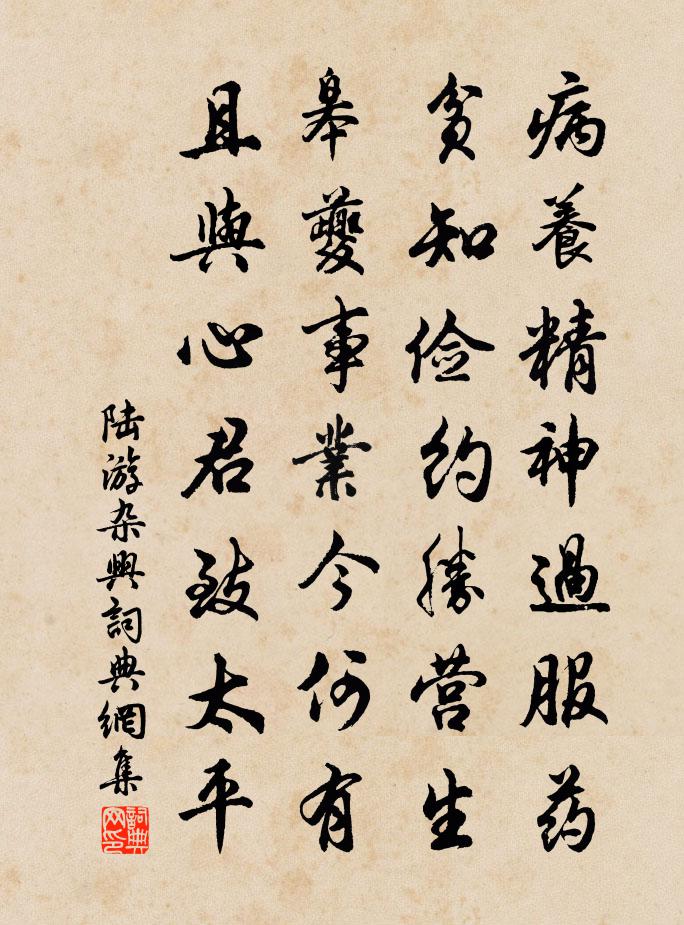 病養精神過服药
贫知俭约勝营生
皋夔事業今何有
且與心君致太平
陆游杂興詞典網集
詞典网印